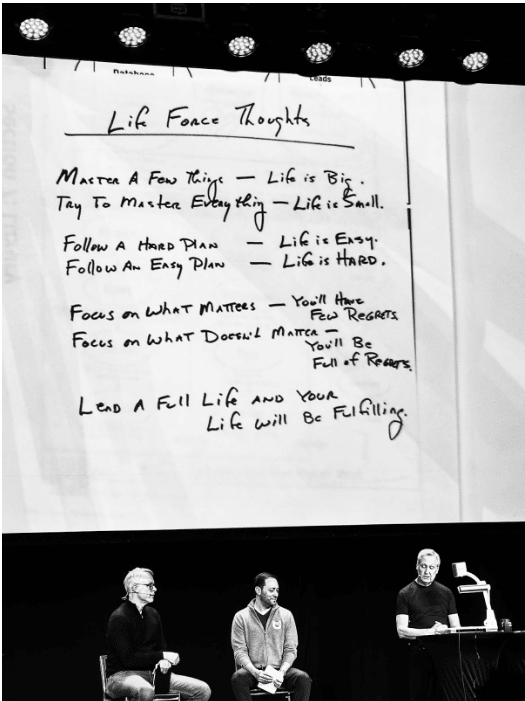 Database
Leads
Life Force Thoughts
Master A Few Things — Life is Big.
Try To Master Everything — Life is Small.
Follow A Hard Plan — Life is Easy.
Follow An Easy Plan — Life is Hard.
Focus on What Matters — You'll Have
Few Regrets.
Focus on What Doesn't Matter —
You'll Be
Full of Regrets.
Lead A Full Life And Your
Life will Be Fulfilling.